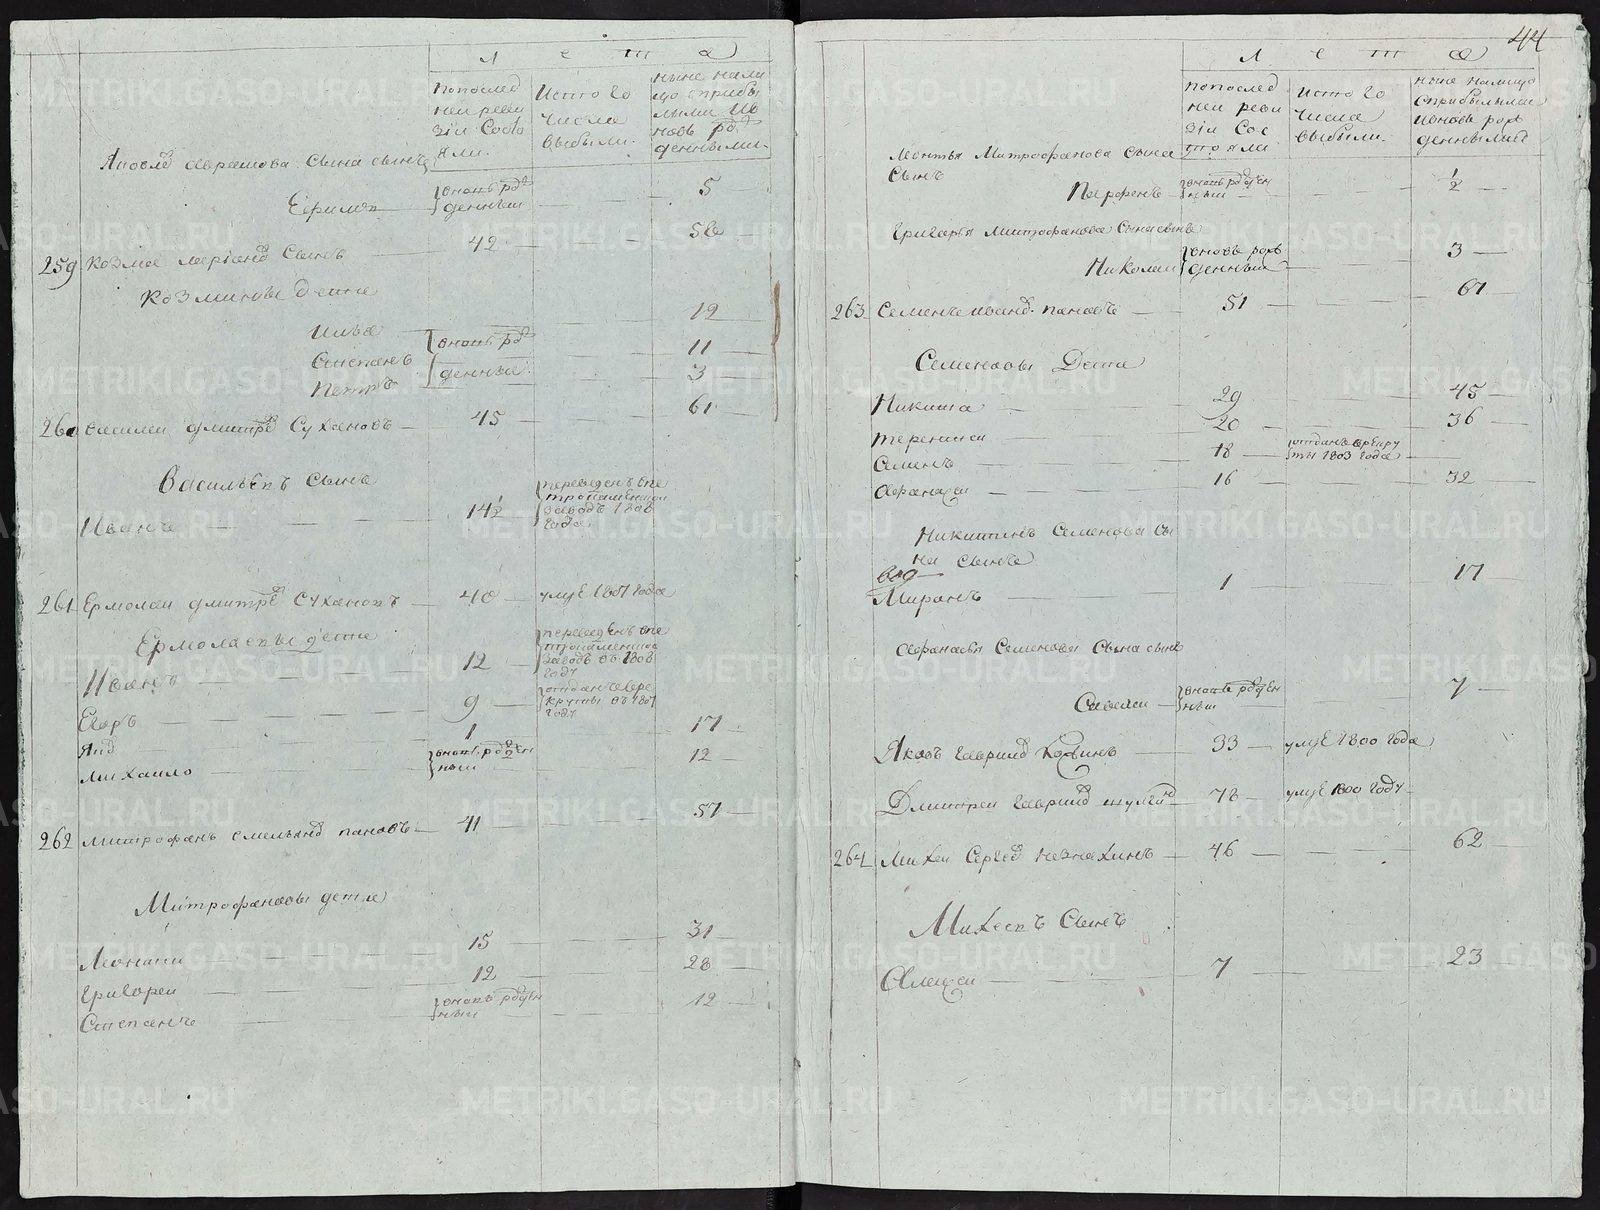 л е т а
попослед
ней реви
зіи Состо
яли.
истого
числа
выбыли.
ныне нали
цо сприбы
лыми ив
новь рож
денными.
Аврамова Сына сынъ
Ефимъ
вновь рож
денный
5
259 Козма Сынъ 42 56
Козмины дети
Илья 19
Степанъ вновь рож 11
Петръ денныя 3
260 Василеи дмитрев Сухановъ 45 61
Васильевъ Сынъ
Иванъ 14 1/2
переведен впе
тропаменской
заводъ 1808
года
261 Ермолаи дмитрев Сухановъ 40 умре 1807 года
Ермолаевы дети
Иванъ 12
переведенъ впе
тропаменской
заводъ въ 1808
году
Егоръ 9
отданъ вре
круты въ 1807
году
1 17
Михаило вновь рожден
ный 12
262 митрофанъ емельянов пановъ 41 57
Митрофановы дети
Леонтии 15 31
Григореи 12 28
Степанъ вновь рожден
ный 12
44
л е т а
попослед
ней реви
зіи Сос
тояли
истого
числа
выбыли.
ныне налицо
сприбылыми
ивновь рож
денными
Леонтья Митрофанова Сына
Сынъ
Парфенъ вновь рожден
ный 1/2
Григорья митрофанова Сына сынъ
Николаи вновь рож
денный 3
263 Семенъ иванов. пановъ 51 67
Семеновы Дети
Никита 29 45
терентии 20 36
Семенъ 18 отданъ врекру
ты 1803 года
Афанасеи 16 32
Никитинъ Семенова Сы
на Сынъ
Миронъ 1 17
Афанасья Семенова Сына сынъ
Савелеи вновь рожден
ный 7
Яковъ гаврилов 33 умре 1800 года
Дмитреи гаврилов шулгин 78 умре 1800 году
264 Михеи Сергеев Незнахинъ 46 62
Михеевъ Сынъ
Алексеи 7 23
METRIKI.GASO-URAL.RU